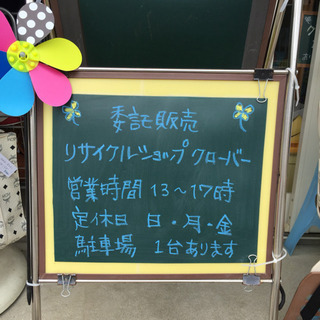 委託販売
リサイクルショップ クローバー
営業時間 13～17時
定休日 日・月・金
駐車場 1台あります